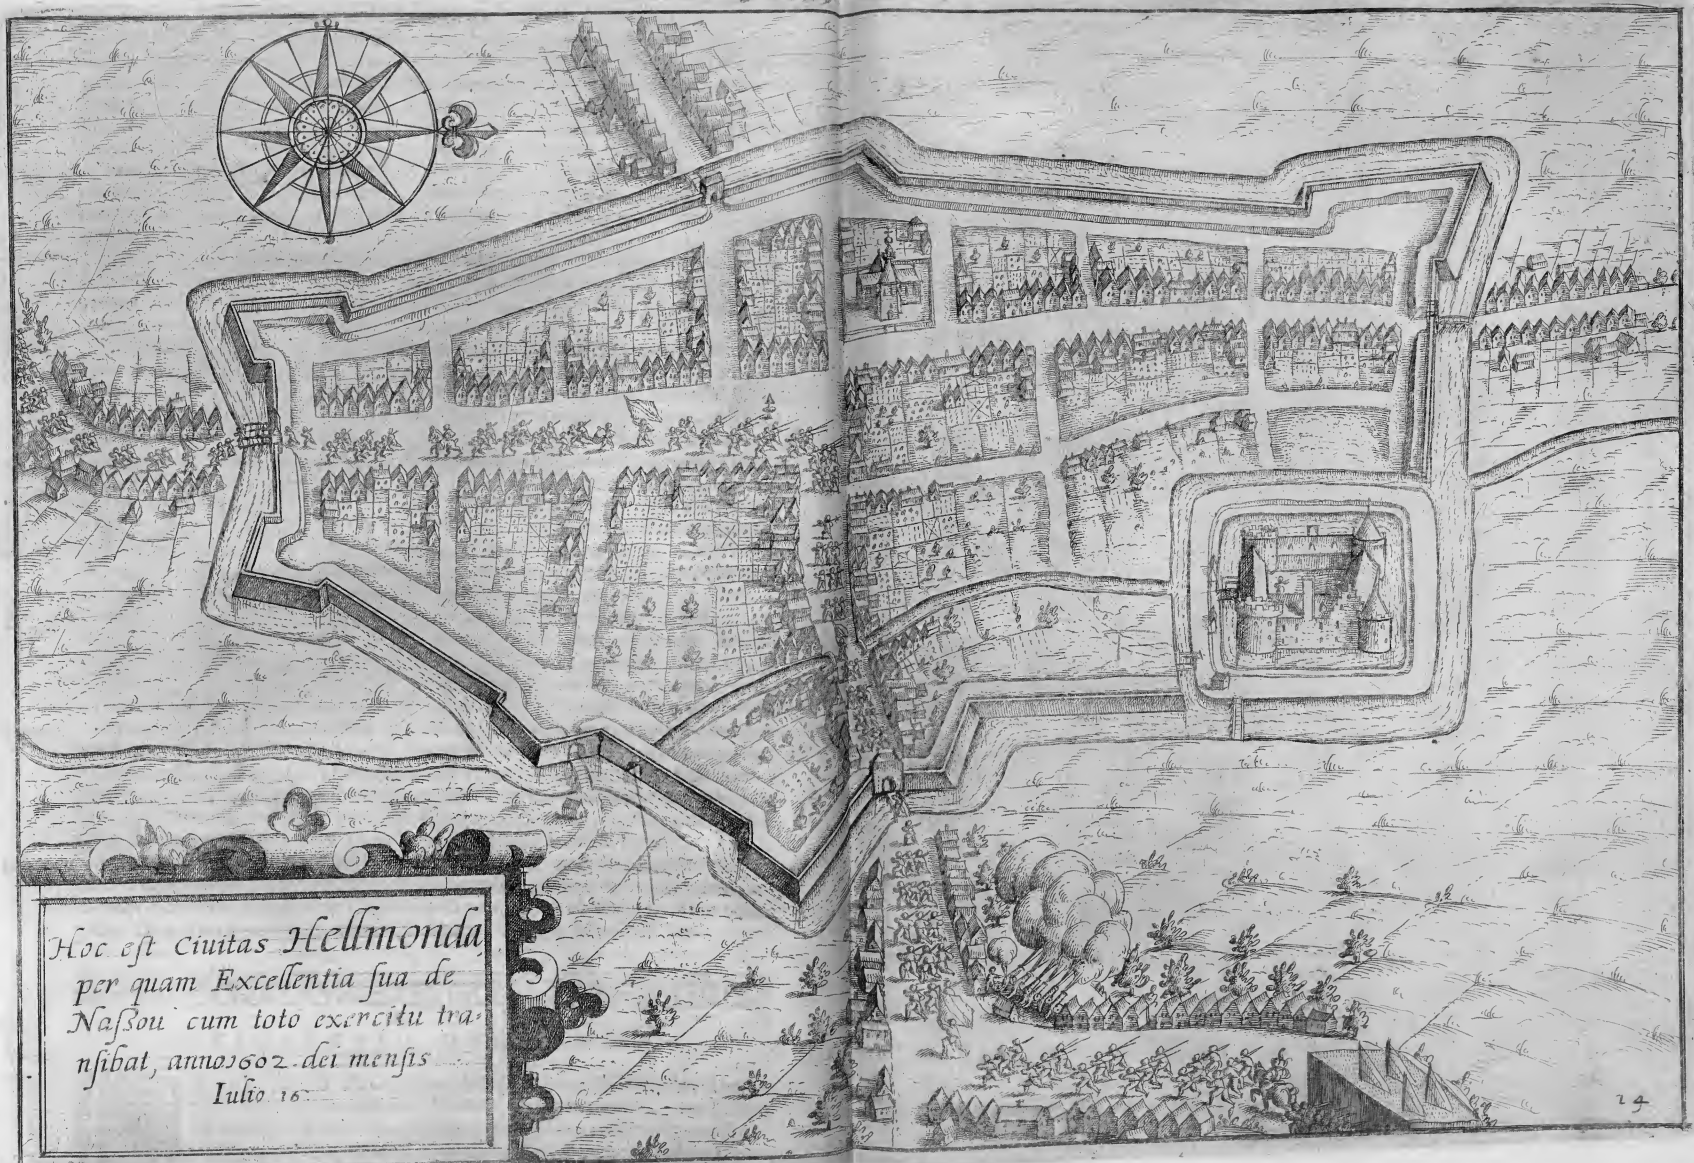 Hoc eſt Ciuitas Hellmonda,
per quam Excellentia ſua de
Naſßou cum toto exercitu tra-
nſibat, anno 1602 dei menſis
Iulio 16
24